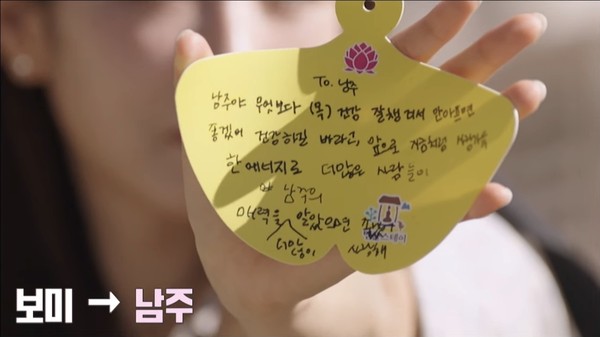 To. 남주
남주야 무엇보다 (목) 건강 잘챙겨서 안아프면
좋겠어 건강하길 바라고, 앞으로 지금처럼
한 에너지로 더많은 사람들이
남주의
매력을 알았으면
더많이 사랑해
보미 → 남주